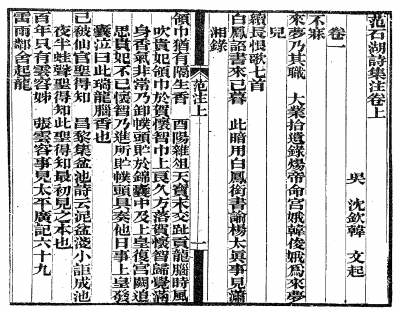 范石湖詩集注卷上
吳 沈欽韓 文起
卷一
不寐
來夢乃其職 大業拾遺錄煬帝命宮娥韓俊娥爲來夢
兒
續長恨歌七首
白鳳詔書來已暮 此暗用白鳳銜書諭楊太眞事見瀟
湘錄
范注上 一
領巾猶有隔生香 酉陽雜俎天寶末交趾貢龍腦時風
吹貴妃領巾於賀懷智巾上良久方落賀懷智歸覺滿
身香氣非常乃卸幞頭貯於錦囊中及上皇復宮闕追
思貴妃不已懷智乃進所貯幞頭具奏他日事上皇發
囊泣曰此瑞龍腦香也
已被仙官聖得知 昌黎集盆池詩云泥盆淺小詎成池
夜半蛙聲聖得知此聖得知最初見之本也
百年只有雲容姊 張雲容事見太平廣記六十九
雷雨鄰舍起龍